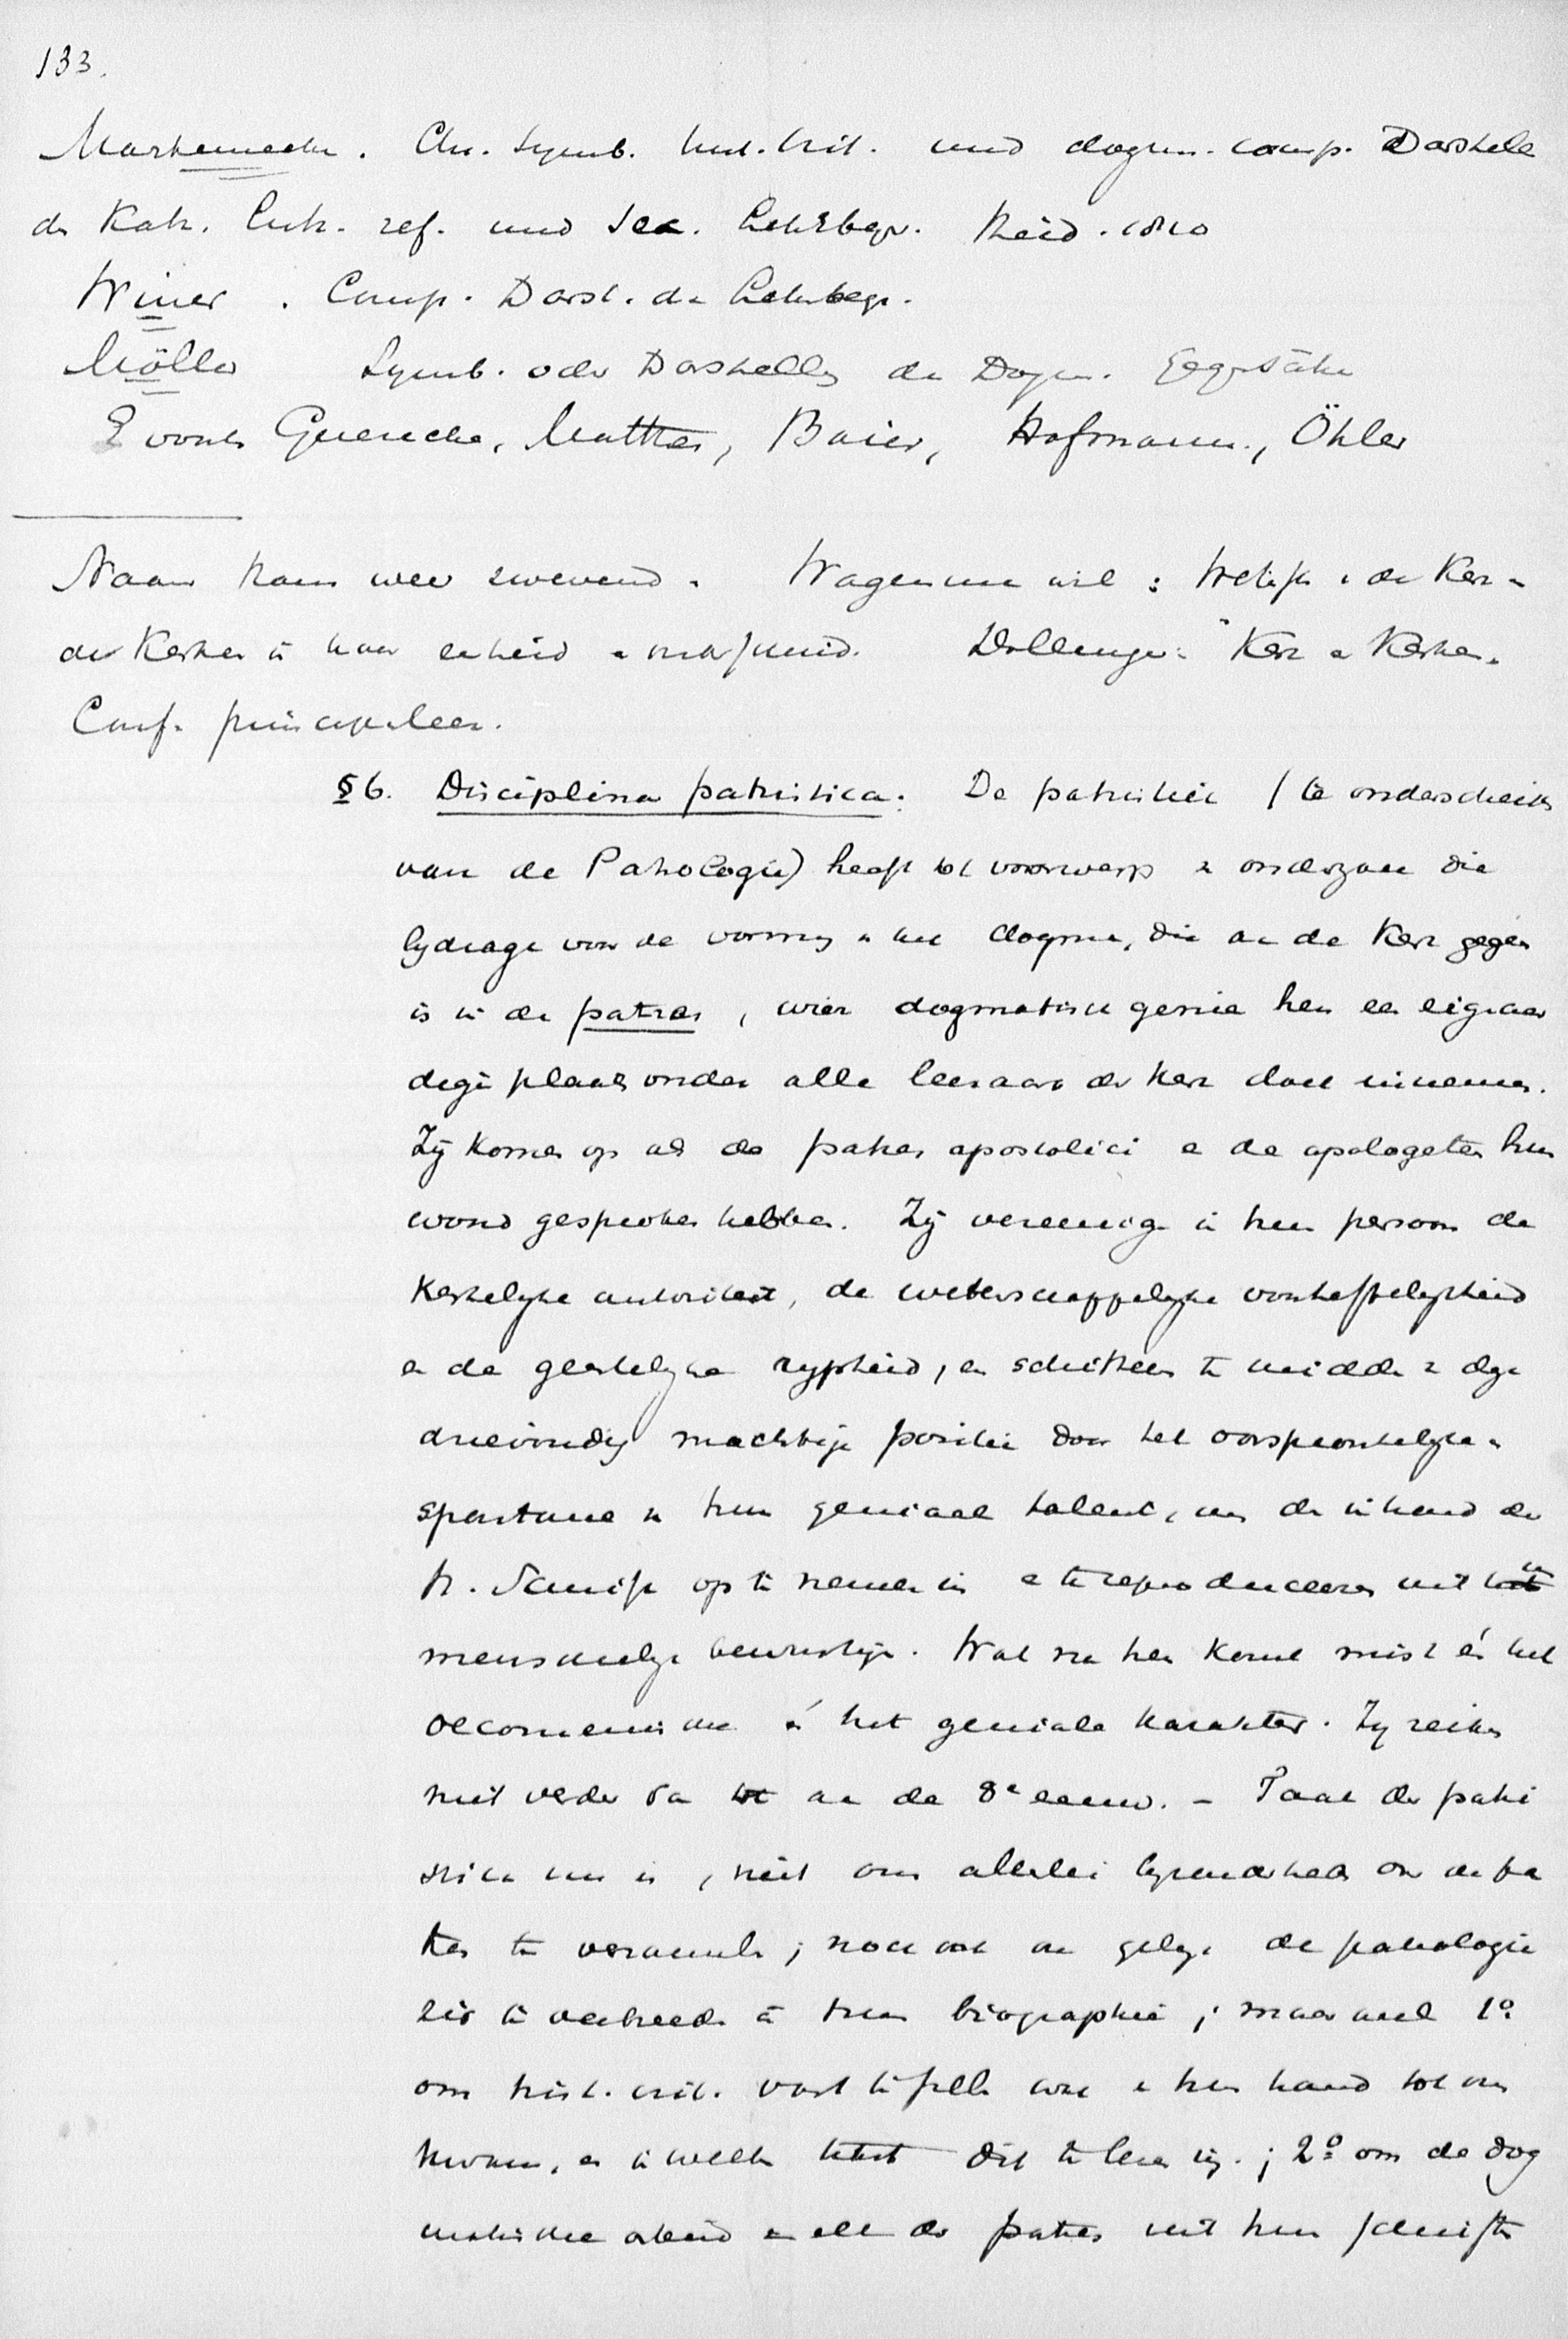 133.
Marheinecke. Chr. Symb. hist. krit. und dogm. comp. Darstell
der Kath. Luth. ref. und Soc. Lehrbegr. Heid. 1810
Winer. Comp. Darst. der Lehrbegr.
Möller Symb. oder Darstellg der Dogm. Ggsätze
E voorts Guericke, Matthes, Baier, Hofmann, Öhler
Naam hier weer zwevend. Wagenaar wil: de Kerk
der Kerken in haar eenheid en Dollinger: Kerk en Kerken.
Conf. principieel.
§ 6. Disciplina patristica. De patristiek (te onderscheiden
van de Patrologie) heeft tot voorwerp v onderzoek die
bijdrage voor de vorming v het dogma, die aan de Kerk gegeven
is in de patres, wier dogmatisch genie hen een eigenaar
dige plaats onder alle leeraars der kerk doet innemen.
Zij komen op als de patres apostolici en de apologeten hun
woord gesproken hebben. Zij vereenigen in hun persoon de
Kerkelijke autoriteit, de wetenschappelijke voortreffelijkheid
en de geestelijke rijpheid, en schitteren te midden v deze
drievoudig machtige positie door het oorspronkelijke en
spontane in hun geniaal talent, om den inhoud der
H. Schrift op te nemen in en te reproduceeren uit het
menschelijk bewustzijn. Wat na hen komt mist én het
oecomenische én het geniale karakter. Zij reiken
niet verder dan tot aan de 8e eeuw. – Taak der patri
stiek nu is, niet om allerlei bijzonderheden over de pa
tres te verzamelen; noch ook om gelijk de patrologie
zich te verbreeden in hun biographie; maar wel 1o.
om hist. crit. vast te stellen wat v hun hand tot ons
kwam, en in welken tekst dit te lezen zij; 2o. om de dog
matische arbeid v elk der patres uit hun schriften